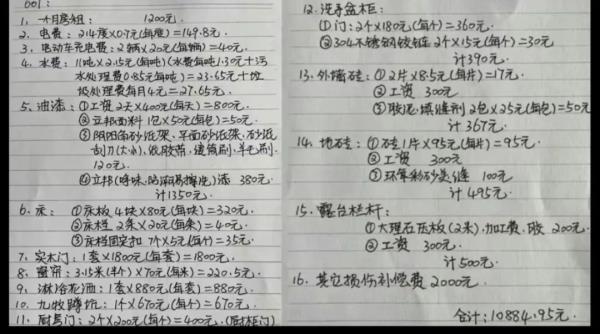 001:
1、一个月房租: 1200元.
2、电费: 214度×0.7元(每度)=149.8元.
3、电动车充电费: 2辆×20元(每辆)=40元.
4、水费: 11吨×2.15元(每吨)(水费每吨1.30元+污
水处理费0.85元每吨)=23.65元+垃
圾处理费每月4元=27.65元.
5、油漆: ①工资2天×400元(每天)=800元.
②立邦面料1包×50元(每包)=50元.
③阴阳角砂纸架、平面砂纸架、砂纸
刮刀(大小)、收胶带、滚筒刷、羊毛刷.
120元.
④立邦(呼吸、防潮易擦洗)漆 380元.
计1350元.
6、床: ①床板4块×80元(每块)=320元.
②床档2条×20元(每条)=40元.
③床档固定扣7个×5元(每个)=35元.
7、实木门: 1套×1800元(每套)=1800元.
8、窗帘: 3.15米(半个)×70元(每米)=220.5元.
9、淋浴花洒: 1套×880元(每套)=880元.
10、九牧蹲坑: 1个×670元(每个)=670元.
11、厨房门: 2个×200元(每个)=400元.(厨柜门)
12、洗手盆柜:
①门: 2个×180元(每个)=360元.
②304不锈钢铰链2个×15元(每个)=30元
计390元.
13、外墙砖: ①2片×8.5元(每片)=17元.
②工资 300元
③胶泥、填缝剂2包×25元(每包)=50元
计367元.
14、地砖: ①砖1片×95元(每片)=95元.
②工资 300元
③环氧彩砂美缝 100元
计495元.
15、露台栏杆:
①大理石压板(2米)、加工费、胶 200元.
②工资 300元.
计500元.
16、其它损伤补偿费2000元.
合计:10884.95元.